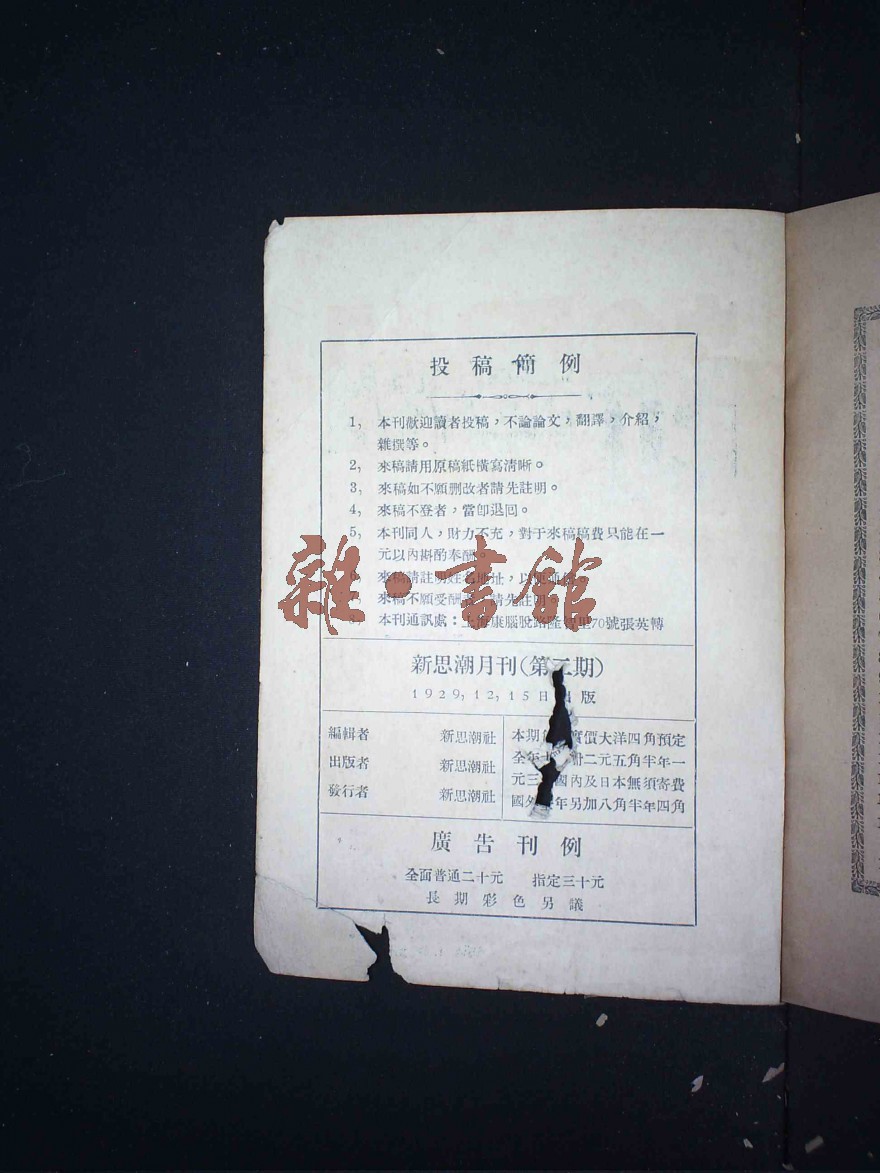 投稿簡例
1, 本刊歡迎讀者投稿，不論論文，翻譯，介紹，
雜撰等。
2, 來稿請用原稿紙橫寫清晰。
3, 來稿如不願刪改者請先註明。
4, 來稿不登者，當卽退囘。
5, 本刊同人，財力不充，對于來稿稿費只能在一
元以內斟酌奉酬。
來稿請註明姓名地址，以便
來稿不願受酬 請先註明
本刊通訊處：上海康腦脫路 里70號張英轉
雜·書館
新思潮月刊(第 期)
1929,12,15日出版
編輯者 新思潮社
出版者 新思潮社
發行者 新思潮社
本期 實價大洋四角預定
全年十 冊二元五角半年一
元三 國內及日本無須寄費
國外 年另加八角半年四角
廣告刊例
全面普通二十元 指定三十元
長期彩色另議